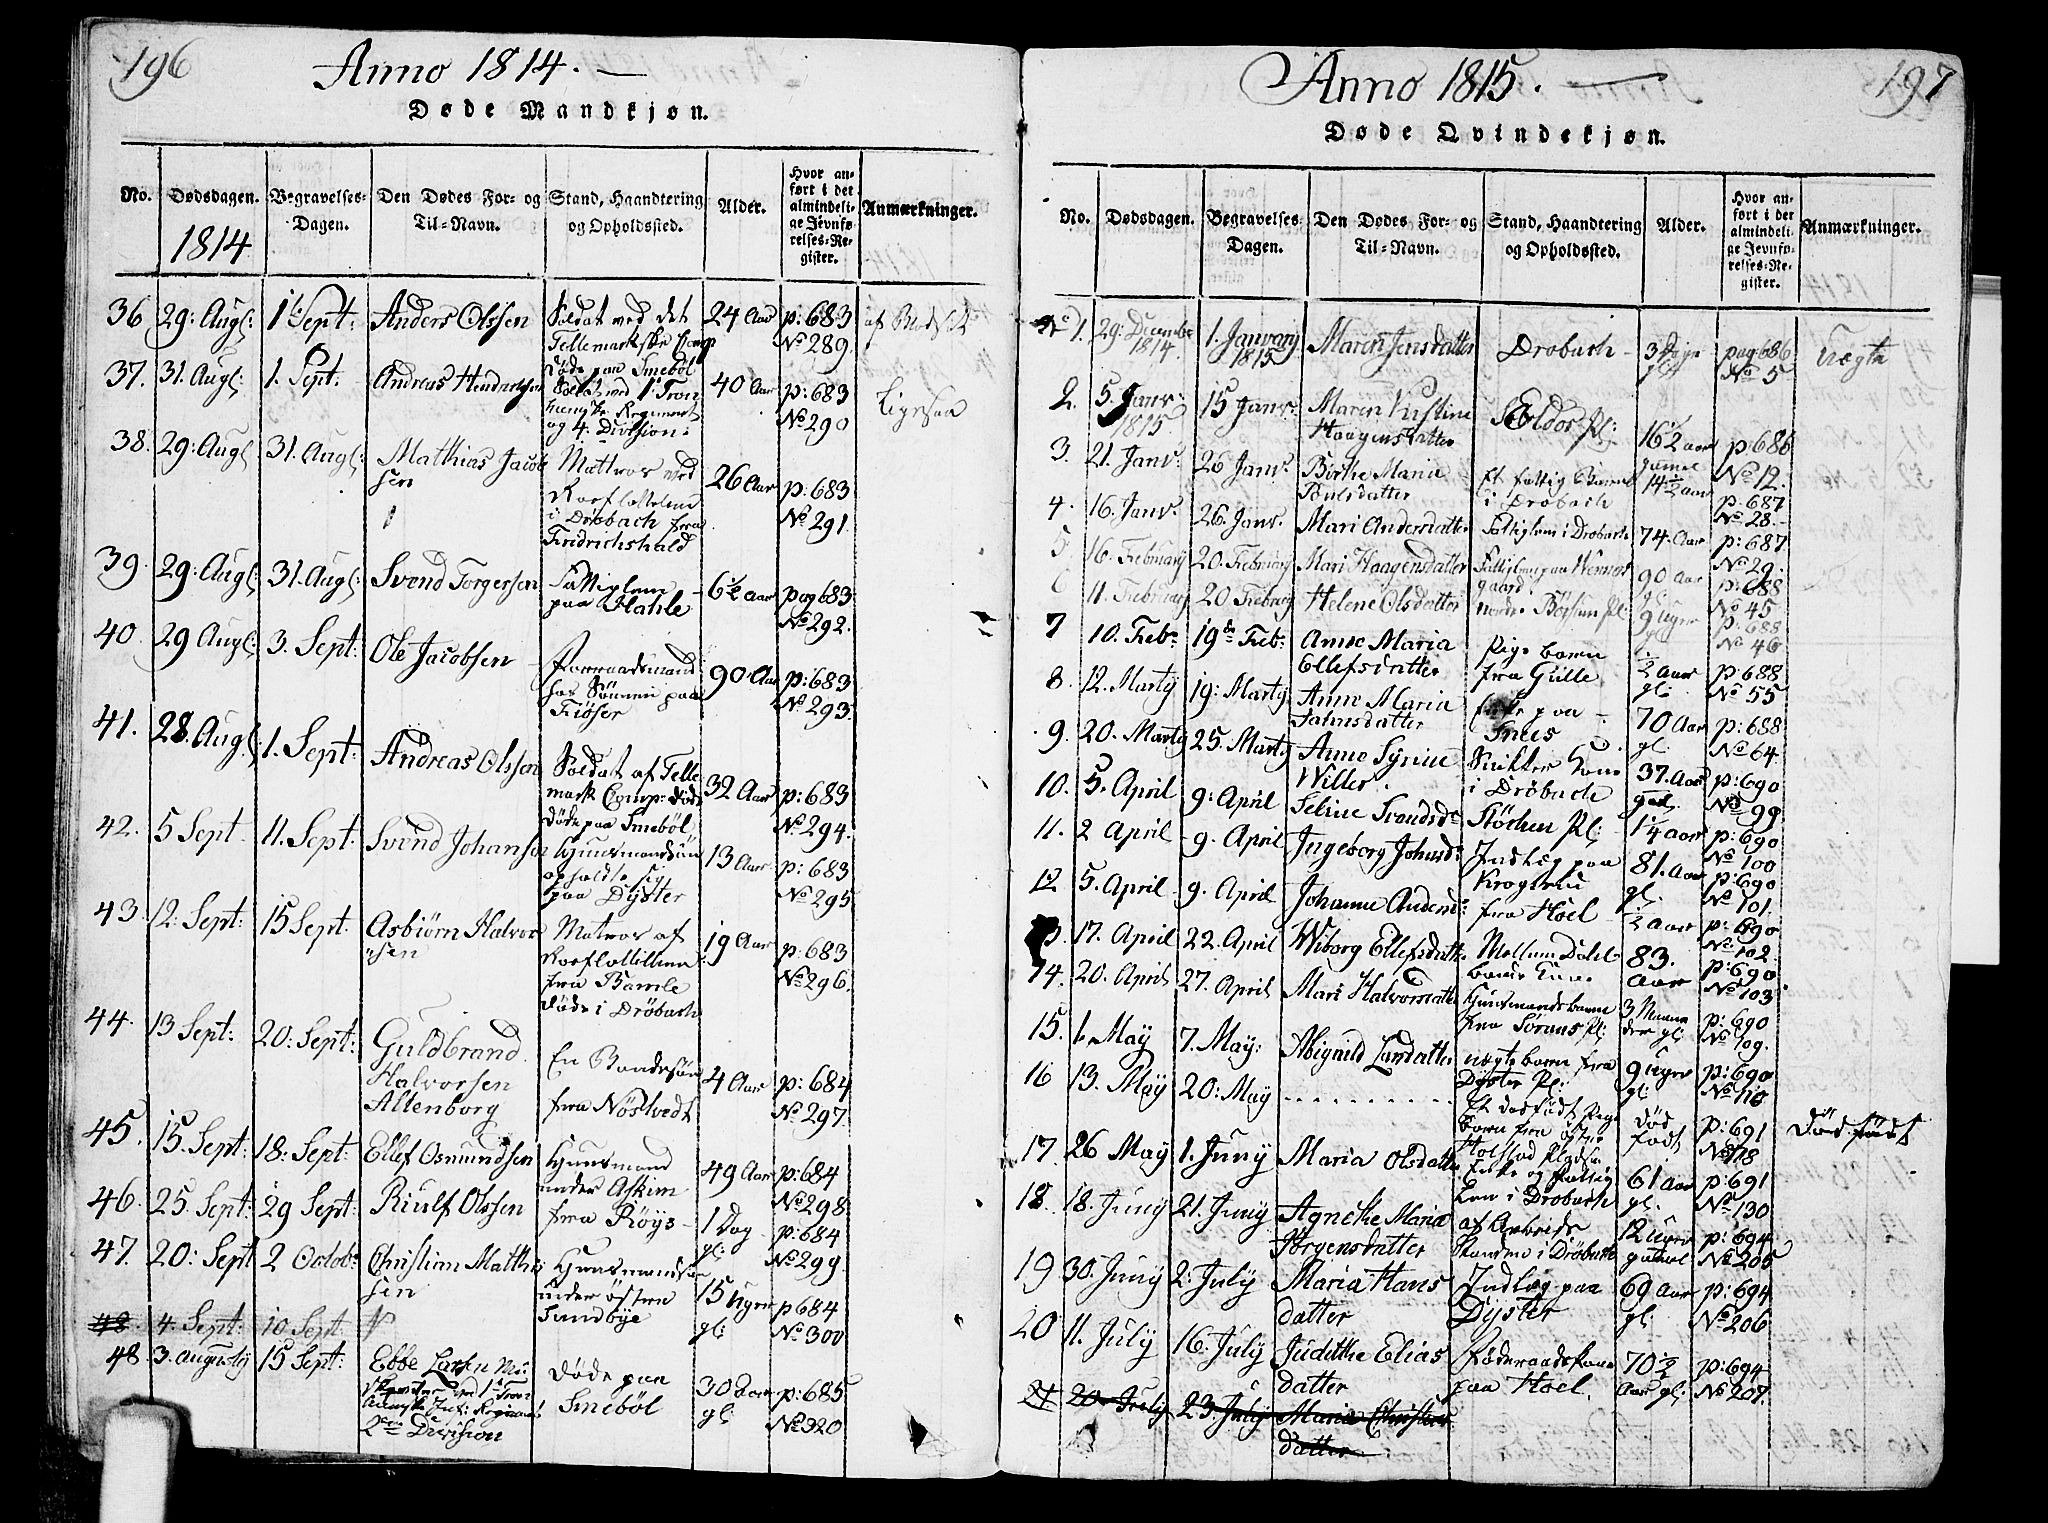 196
Anno 1814. —
Døde Mandkjøn.
No. Dødsdagen. Begravelses-Dagen. Den Dødes For- og Til-Navn. Stand, Haandtering og Opholdssted. Alder. Hvor anført i det almindelige Jevnførelses-Register. Anmærkninger.
1814
36 29: Augl: 1te Sept: Anders Olssen Soldat ved det Tellemarkske Comp døde paa Smebøl 24 Aar p: 683 No 289. af Blodsot
37. 31. Augl: 1. Sept: Andreas Hendrichsen Soldat ved 1te Tronhiemske Regiment og 4. Division: 40 Aar p: 683 No 290 Ligesaa
38. 29: Augl 31. Augl: Mathias Jacobsen Matros ved Roeflottillen i Drøbach fra Fridrichshald 26 Aar p: 683 No 291.
39. 29: Augl: 31. Augl: Svend Torgersen Fattiglem paa Hahle 6½ Aar pag 683 No 292.
40. 29 Augl: 3. Sept: Ole Jacobsen Foeraadsmand hos Sønnen paa Fiøser 90 Aar p: 683 No 293.
41. 28. Augl: 1. Sept: Andreas Olssen Soldat af Tellemark Comp: døde paa Smebøl 32 Aar p: 683 No 294.
42. 5 Sept. 11. Sept: Svend Johansen Huusmandssøn opholdte sig paa Dyster 13 Aar p: 683 No 295
43. 12: Sept: 15 Sept. Asbiørn Halvorsen Matros af Roeflottillen fra Bamle døde i Drøbach 19 Aar p: 683 No 296.
44. 13 Sept: 20: Sept: Guldbrand Halvorsen Altenborg En Bondesøn fra Nøstvedt 4 Aar p: 684 No 297.
45. 15. Sept: 18: Sept: Ellef Osmundsen Huusmand under Askim 49 Aar p: 684 No 298
46. 25. Sept: 29 Sept: Riulf Olssen fra Røys 1 Dag gl: p: 684 No 299.
47. 20: Sept 2 Octobr Christian Mathisen Huusmands under østre Sundbye 15 Uger gl: p 684 No 300
48. 4. Sept: 10 Sept
48 3. Augusty 15 Sept: Ebbe Larsen ved 1te Tronhiemske Inf: Regiments 2den Division Døde paa Smebøl 30 Aar gl: p: 685 No 320
197
Anno 1815. —
Døde Qvindekjøn.
No. Dødsdagen. Begravelses-Dagen. Den Dødes For- og Til-Navn. Stand, Haandtering og Opholdssted. Alder. Hvor anført i det almindelige Jevnførelses-Register. Anmærkninger.
No 1. 29: Decembr 1814. 1. Janvary 1815 Maren Jensdatter Drøbach 3 Dage gl: pag: 686 No 5 Uægte
2. 5. Janv: 1815. 15 Janv: Maren Kirstine Haagensdatter Pl: 16½ Aar gamel p: 686 No 12.
3. 21. Janv: 26 Janv: Birthe Maria Poulsdatter Et fattig Barn i Drøbach 14½ Aar p: 687 No 28.
4. 16. Janv: 26. Janv. Mari Andersdatter Fattiglem i Drøbach 74. Aar p: 687 No 29.
5. 16. February 20. February Mari Haagensdatter Fattiglem paa Wernersgaard. 90 Aar gl: p: 688 No 45
6 11. February 20 February Helene Olsdatter Pl: 9 Uger p: 688 No 46
7 10. Feb: 19de Feb: Anne Maria Ellefsdatter Pige barn fra Gulle ½ Aar gl: p: 688 No 55
8. 12. Marty 19: Marty Anne Maria Hansdatter Enke paa Snees 70 Aar gl: p: 688 No 64.
9. 20. Marty 25. Marty Anne Syrine Willer. Snikker Kone i Drøbach 37. Aar gl. p: 690 No 99
10. 5. April 9: April Seline Svendsd: Støchen Pl: 1¼ Aar p: 690 No 100
11. 2 April 9. April Ingeborg Johnsd: Indlæg paa Krogsrud 81. Aar gl. p: 690 No 101.
12 5. April 9. April Johanne Andersd: fra Hoel ½ Aar p: 690 No 102.
17. April 22. April Wiborg Ellefsdatter Mellem Dahl 83. Aar p: 690 No 103
14. 20. April 27. April Mari Halvorsdatter Huusmandsbarn fra Sørans Pl: 3 Maaneder gl: p: 690 No 109.
15. 1. May 7. May: Abigaild Larsdatter uægte barn fra Dyster Pl: 9 Uger gl: p: 690 No 110
16 13. May 20: May .......... Et dødfødt Pigebarn fra østre Holstad Pladsen død født p: 691 No 118 Død født
17. 26 May 1. Juny Maria Olsdatter Enke og Fattig Lem i Drøbach 61 Aar gl: p: 691 No 130
18. 18. Juny 21. Juny Agnethe Maria Jørgensdatter af Arbeids Manden i Drøbach 12 Uger gamel p: 694 No 205
19 30. Juny 2. July Maria Hansdatter Indlæg paa Dyster 69 Aar gl: p: 694 No 206
20 11. July 16. July Judithe Eliasdatter Føderaadskone paa Hoel. 70½ Aar gl: p: 694 No 207.
21 20. July 23. July Maria Christensdatter